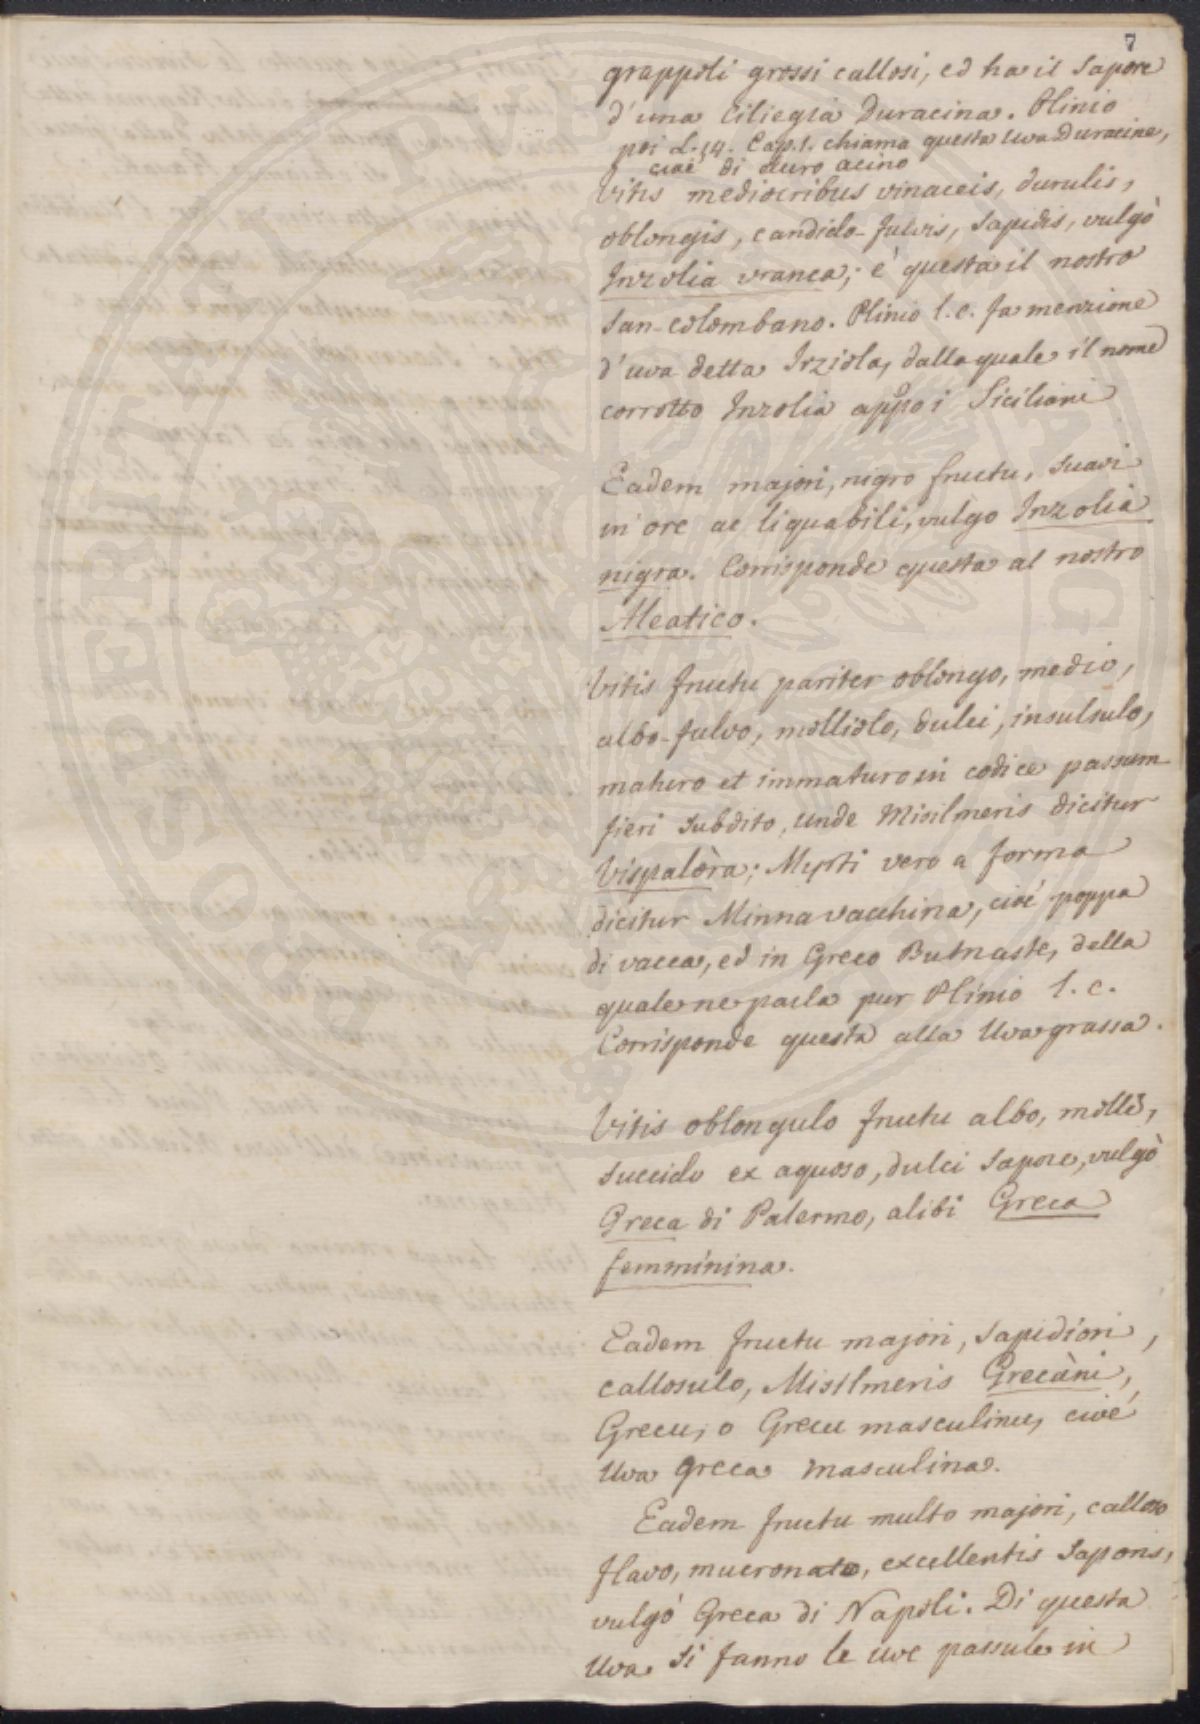 7
grappoli grossi callosi, ed ha il sapore
d'una Ciliegia Duracina. Plinio
poi L. 14. Cap. 1. chiama questa uva Duracine,
cioè di duro acino
Vitis mediocribus vinaceis, durulis,
oblongis, candido-fulvis, sapidis, vulgò
Inzolia vranca; è questa il nostro
San-Colombano. Plinio l. c. fa menzione
d'uva detta Irziola, dalla quale il nome
corrotto Inzolia appo i Siciliani
Eadem majori, nigro fructu, suavi
in ore ac liquabili, vulgo Inzolia
nigra. Corrisponde questa al nostro
Aleatico.
Vitis fructu pariter oblongo, medio,
albo-fulvo, molliolo, dulci, insulsulo,
maturo et immaturo in codice passum
fieri subdito, unde Misilmeris dicitur
Vispalòra; Myrti vero a forma
dicitur Minna vacchina, cioè poppa
di vacca, ed in Greco Bumaste, della
quale ne parla pur Plinio l. c.
Corrisponde questa alla Uva grassa.
Vitis oblongulo fructu albo, molli,
succido ex aquoso, dulci sapore, vulgò
Greca di Palermo, alibi Greca
femminina.
Eadem fructu majori, sapidiori,
callosulo, Misilmeris Grecàni,
Grecu, o Grecu masculinu, cioè
Uva greca masculina.
Eadem fructu multo majori, calloso
flavo, mucronato, excellentis saporis,
vulgò Greca di Napoli. Di questa
Uva si fanno le uve passule in